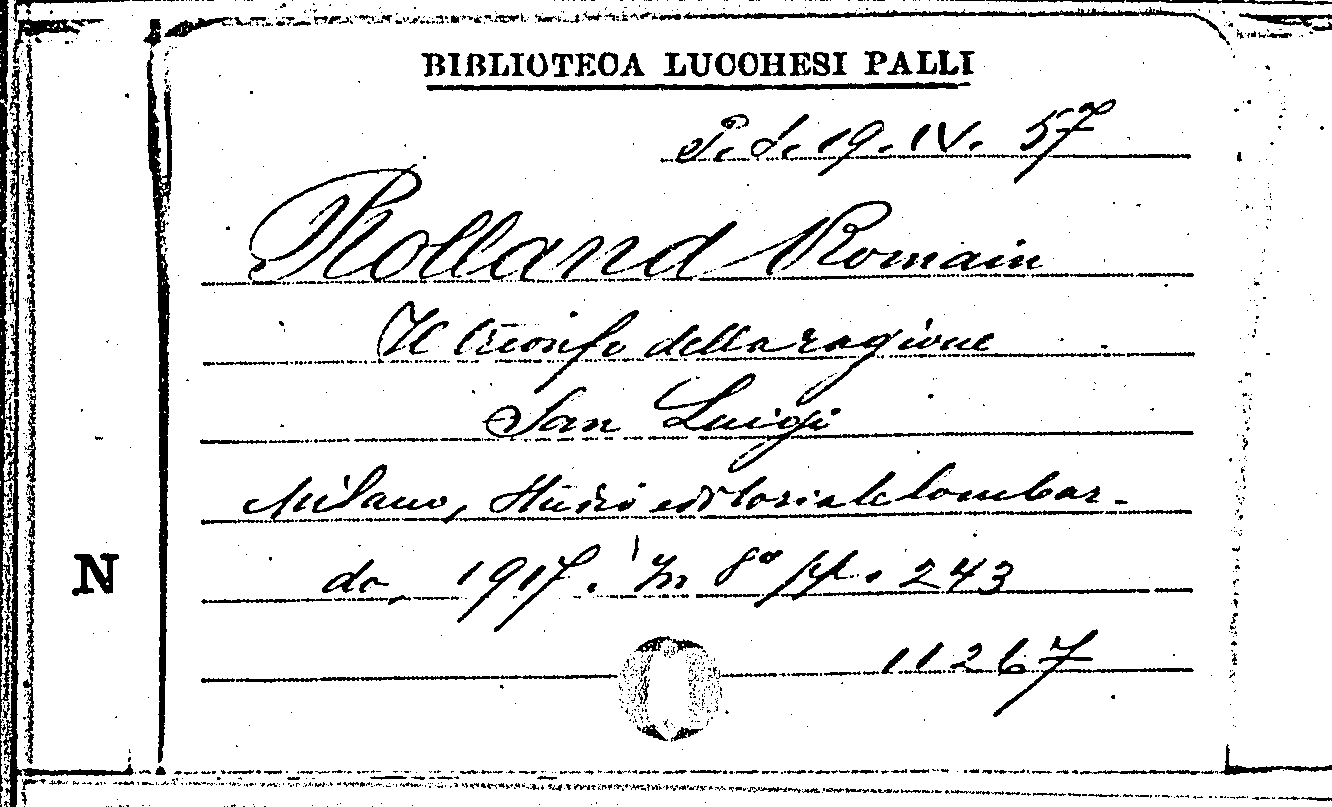 BIBLIOTECA LUCCHESI PALLI
P. d. 19. IV. 57
Rolland Romain
Il trionfo della ragione
San Luigi
Milano, Studio editoriale lombar-
do, 1917. In 8° pp. 243
N
11267